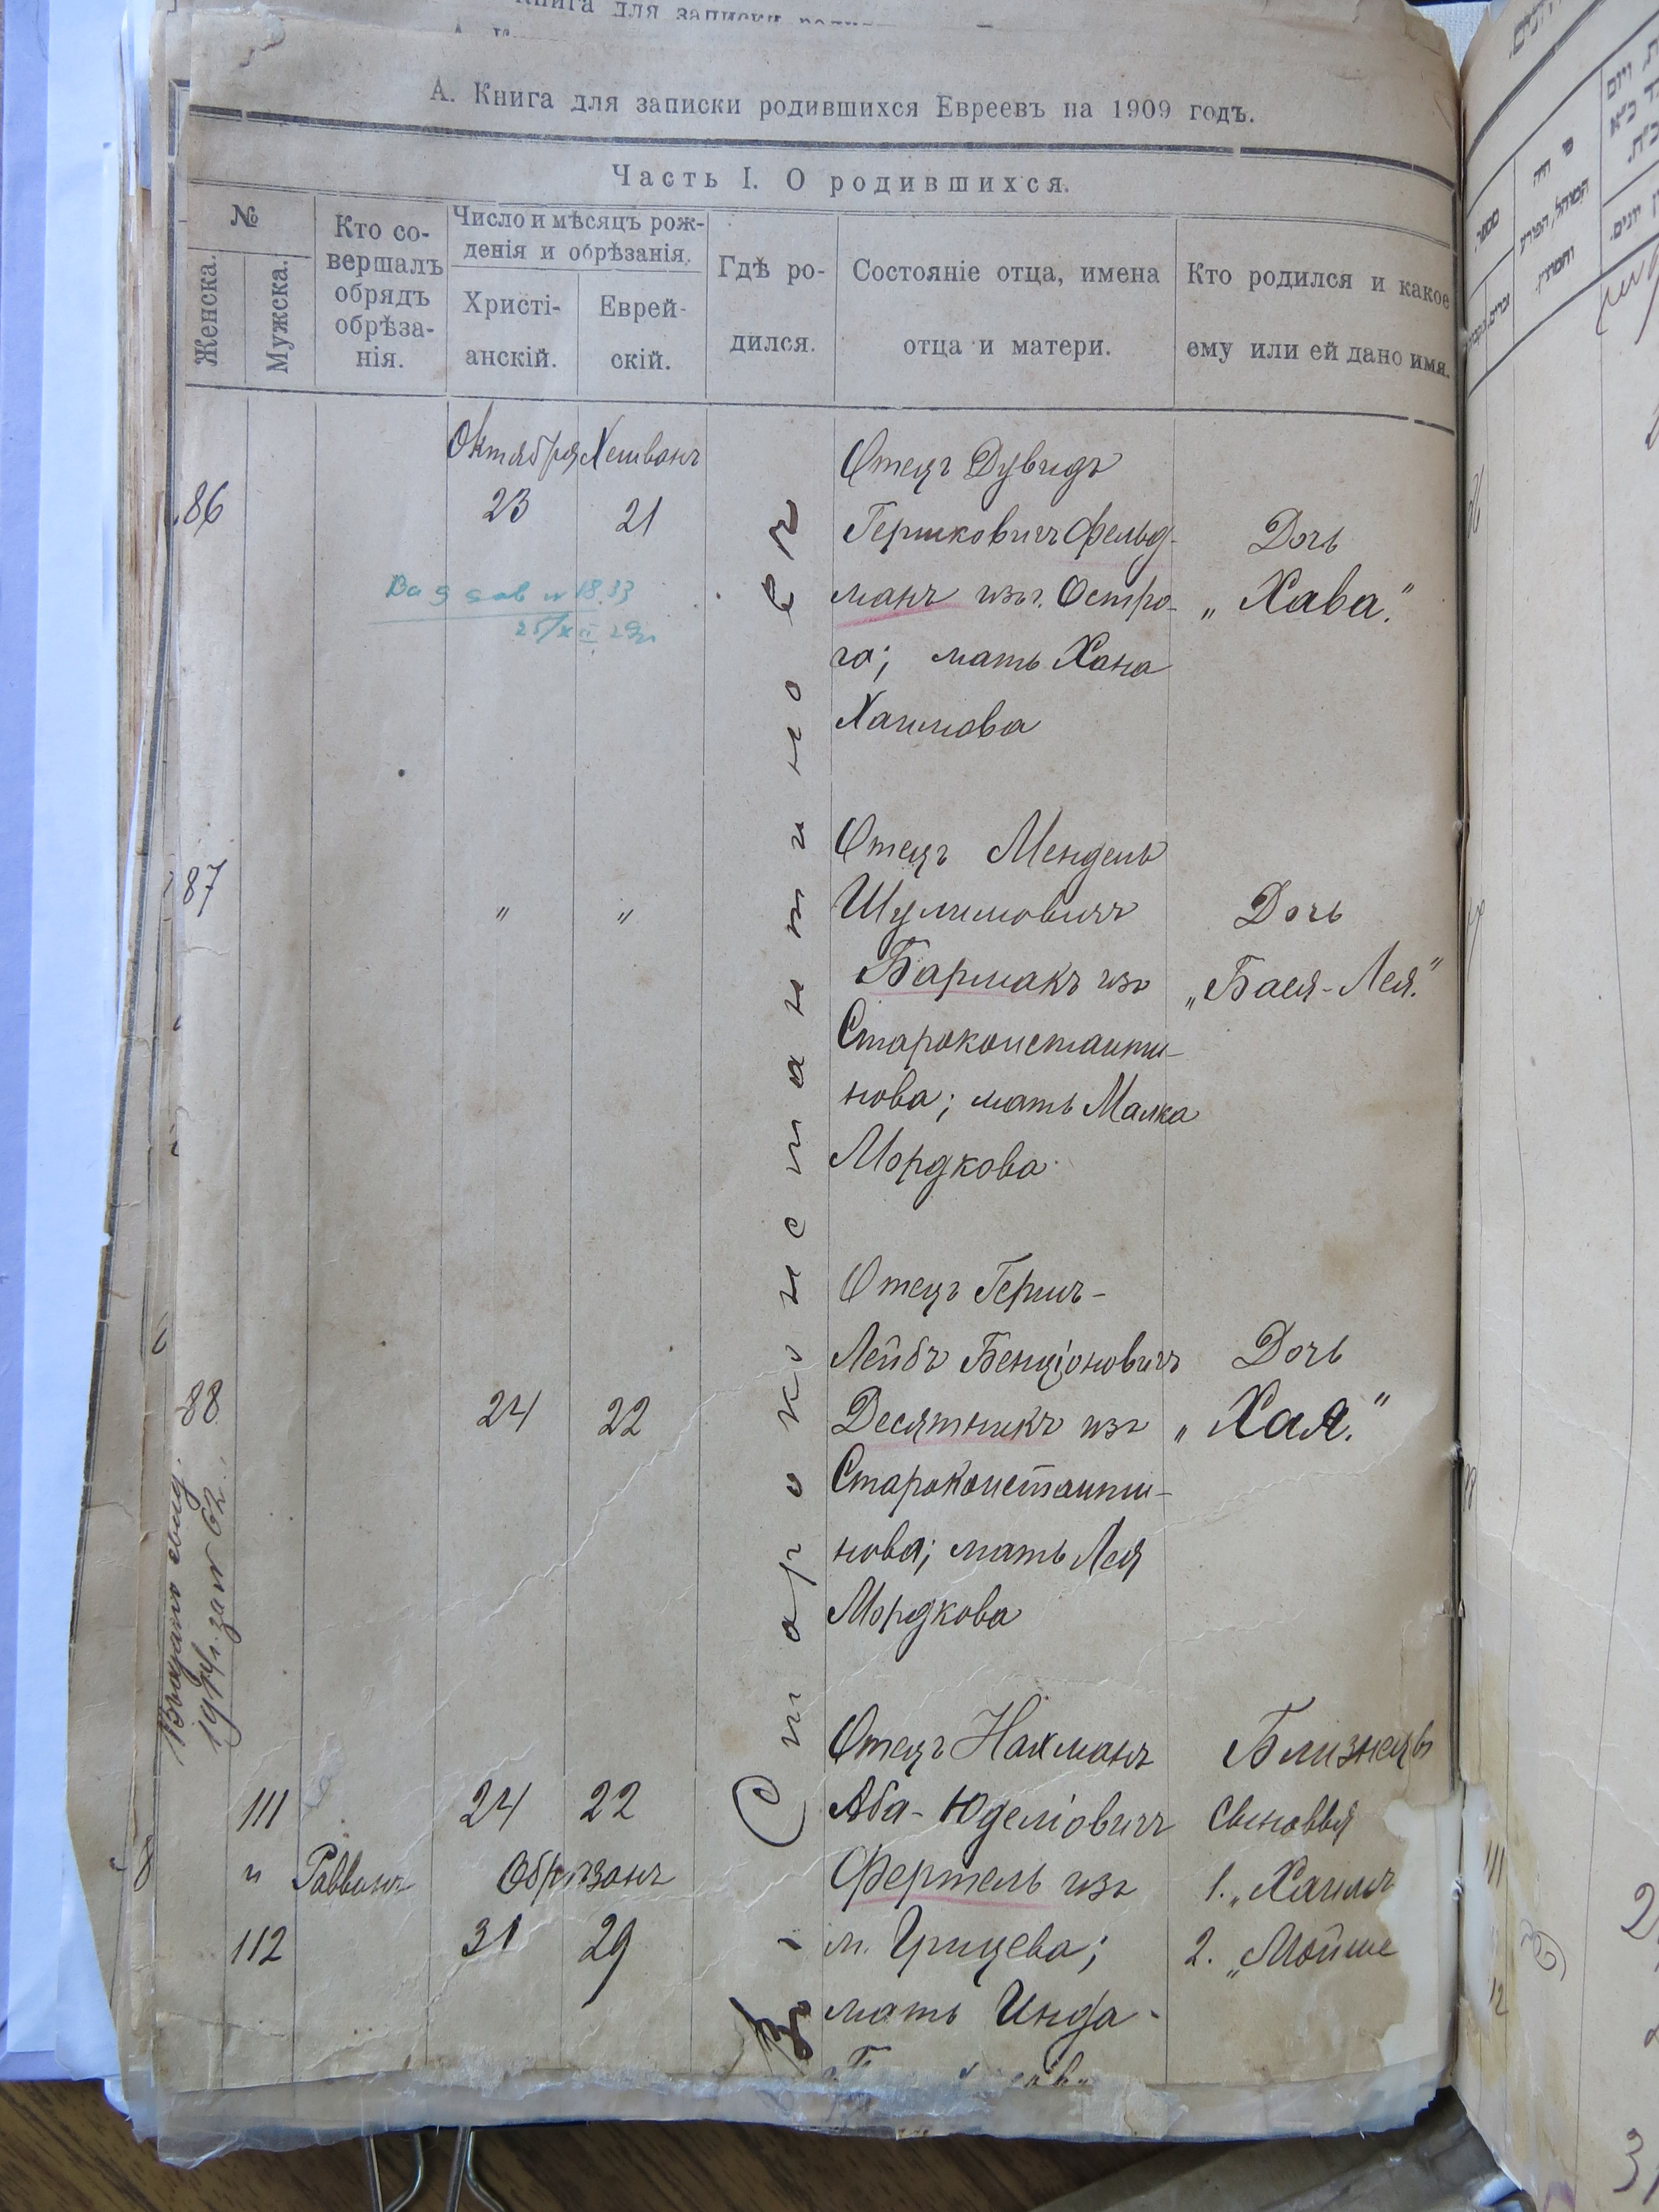 А. Книга для записки родившихся Евреевъ на 1909 годъ.
Часть I. О родившихся.
№
Женска.
Мужска.
Кто со-
вершалъ
обрядъ
обрѣза-
нія.
Число и мѣсяцъ рож-
денія и обрѣзанія.
Христі-
анскій.
Еврей-
скій.
Гдѣ ро-
дился.
Состояніе отца, имена
отца и матери.
Кто родился и какое
ему или ей дано имя.
Въ г. Староконстантиновѣ
86
Октября Хешванъ
23 21
Отецъ Дувидъ
Гершковичъ Фельд-
манъ изъ г. Остро-
га; мать Хана
Хаимова
Дочь
„Хава."
87
" "
Отецъ Мендель
Шулимовичъ
Бармакъ изъ
Староконстанти-
нова; мать Малка
Мордкова
Дочь
„Бася-Лея."
88
24 22
Отецъ Гершъ-
Лейбъ Бенціоновичъ
Десятникъ изъ
Староконстанти-
нова; мать Лея
Мордкова
Дочь
„Хая."
Выдано свид.
за № 62
111
и
112
Раввинъ
24 22
Обрѣзанъ
31 29
Отецъ Нахманъ
Аба-Юделіовичъ
Фертель изъ
м. Грицева;
мать Инда-
Близнецы
Сыновья
1. „Хаимъ
2. „Мойше